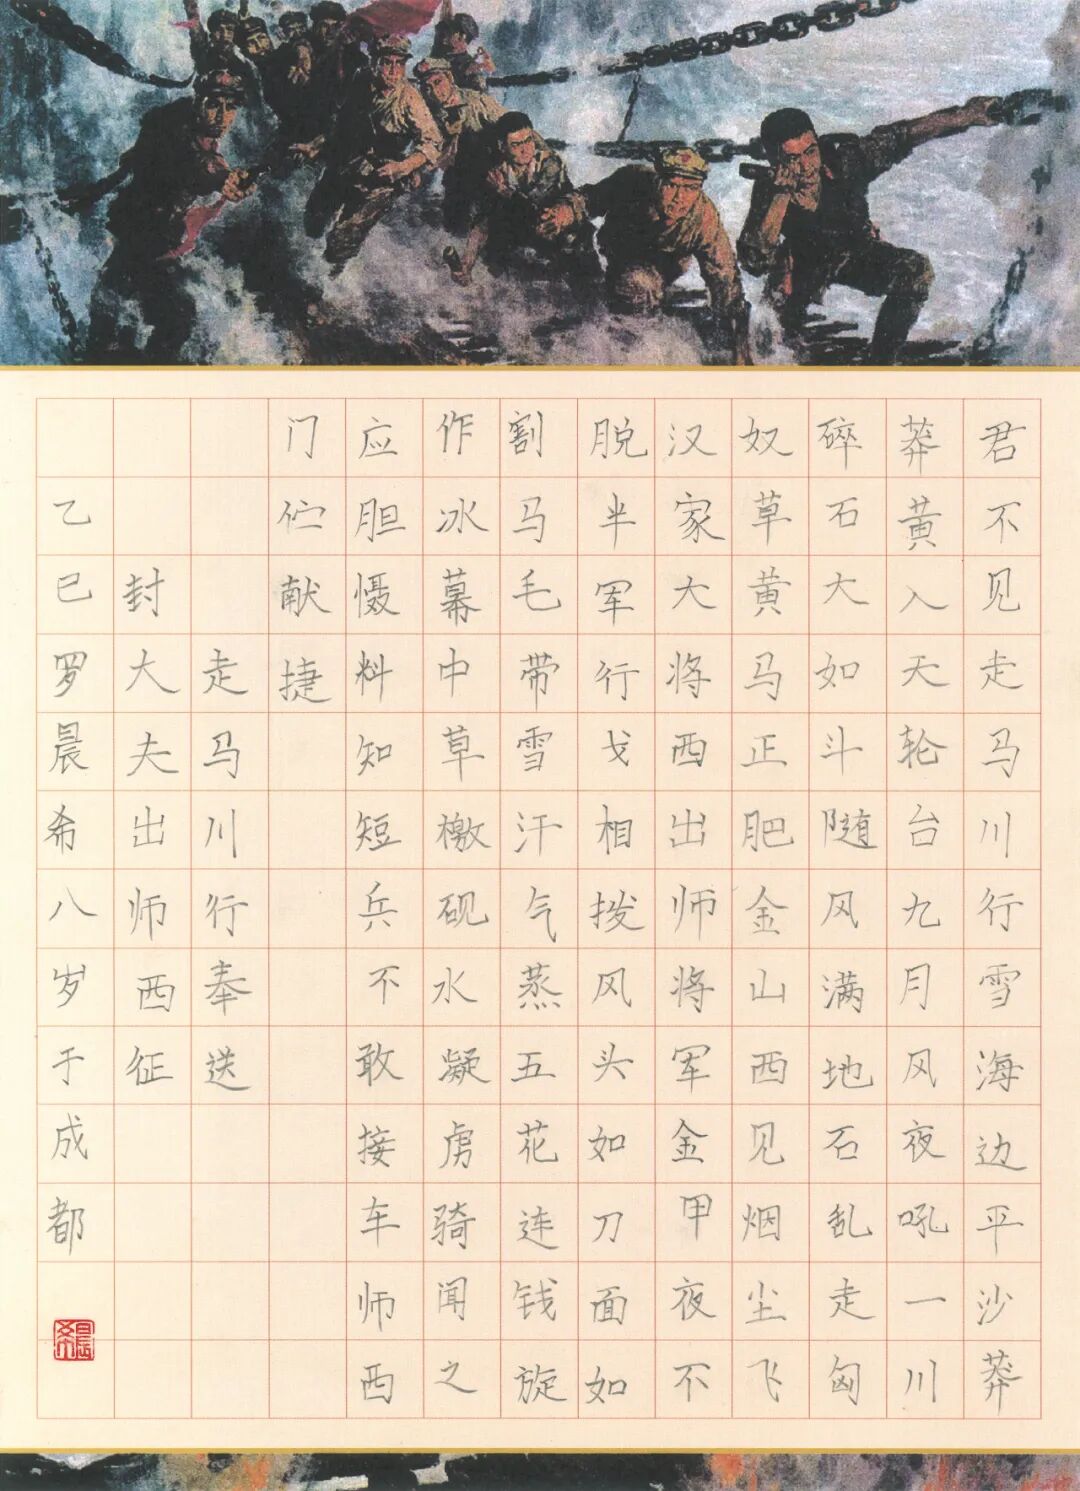 君不见走马川行雪海边平沙莽
莽黄入天轮台九月风夜吼一川
碎石大如斗随风满地石乱走匈
奴草黄马正肥金山西见烟尘飞
汉家大将西出师将军金甲夜不
脱半军行戈相拨风头如刀面如
割马毛带雪汗气蒸五花连钱旋
作冰幕中草檄砚水凝虏骑闻之
应胆慑料知短兵不敢接车师西
门伫献捷
走马川行奉送
封大夫出师西征
乙巳罗晨希八岁于成都
晨希